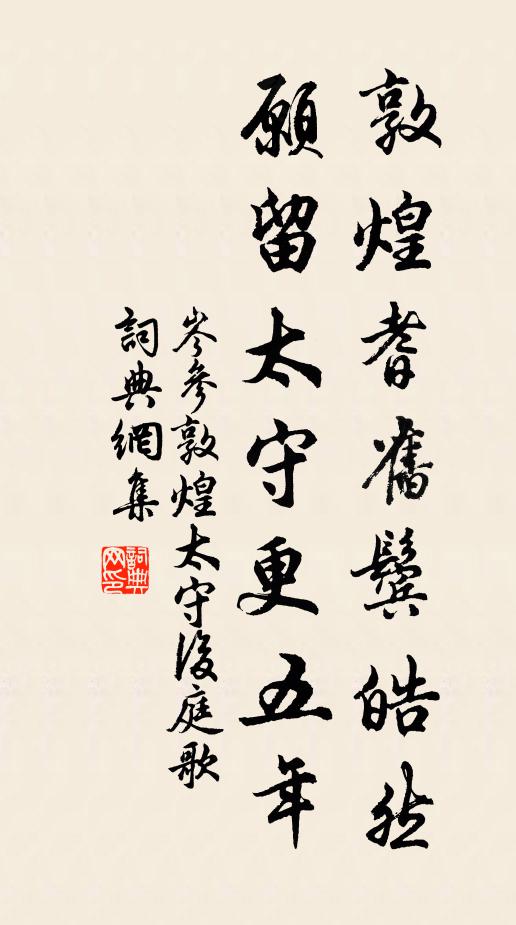 敦煌耆舊鬢皓然
願留太守更五年
岑參敦煌太守後庭歌
詞典網集
詞典网印